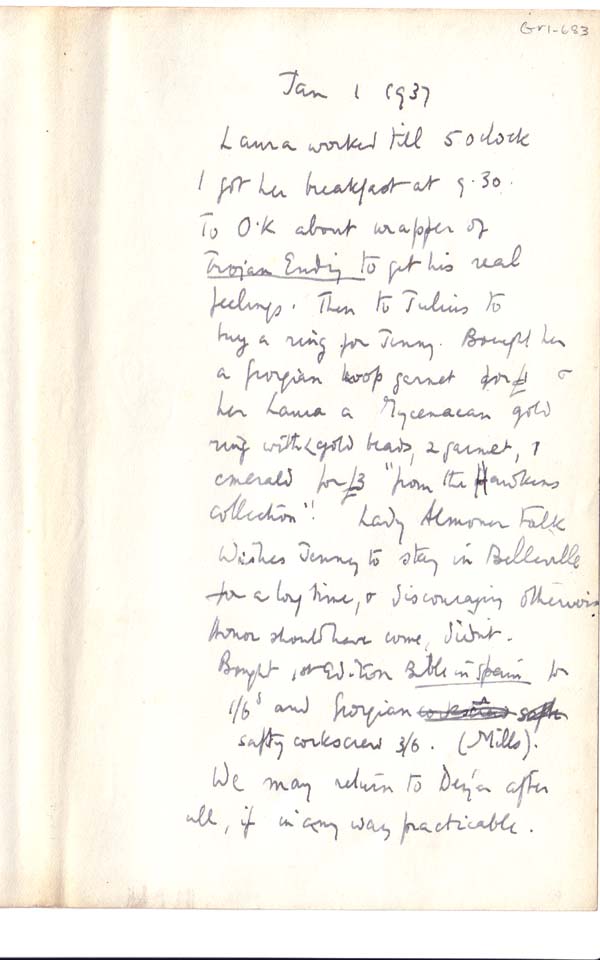 Gr1-683
Jan 1 1937
Laura worked till 5 oclock
I got her breakfast at 9.30.
To O.K about wrapper of
Trojan Ending to get his real
feelings. Then to Julius to
buy a ring for Jenny. Bought her
a Georgian hoop garnet for £1 &
her Laura a Mycenaean gold
ring with gold beads, 2 garnet, 1
emerald for £3 "from the Hawkins
collection"! Lady Almoner Falk
wishes Jenny to stay in Belleville
for a long time, & discouraging otherwise
Honor should have come, didnt.
Bought 1st Edition Bible in Spain for
1/6d and Georgian corkscrew safty
safty corkscrew 3/6. (Mills).
We may return to Deyá after
all, if in any way practicable.